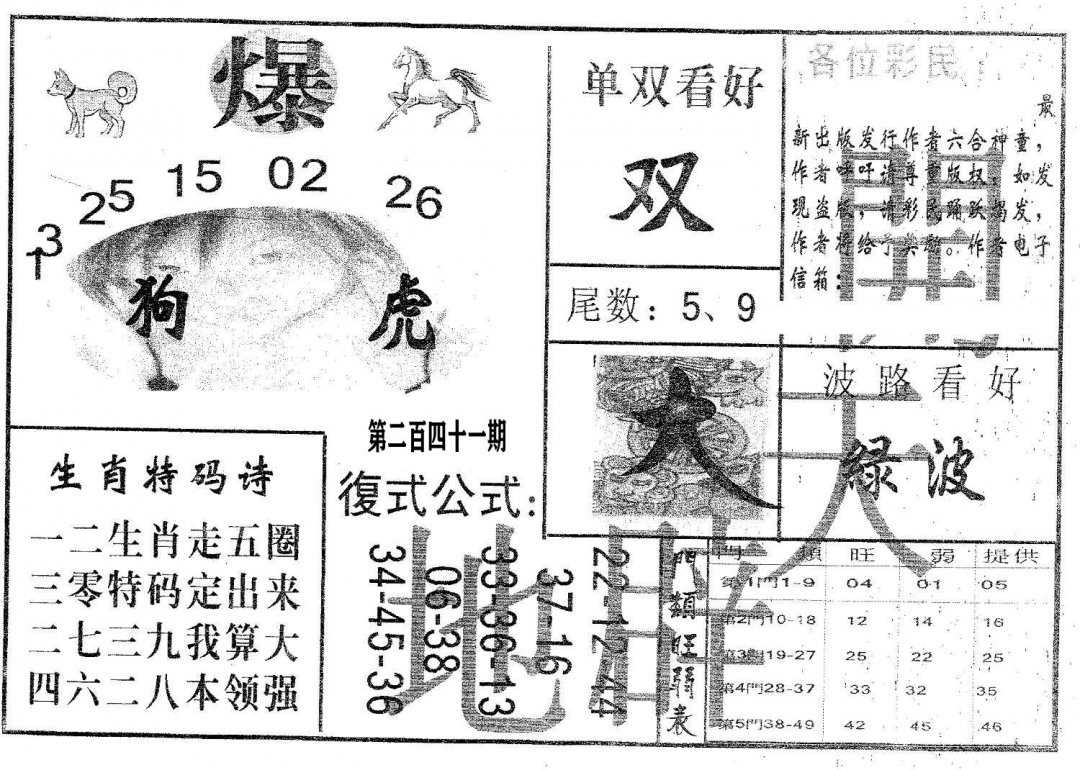 爆
13
25
15
02
26
狗
虎
单双看好
双
尾数：5、9
各位彩民：
最
新出版发行作者六合神童，
作者呼吁请尊重版权，如发
现盗版，请彩民踊跃揭发，
作者将给予奖励。作者电子
信箱：
大
波路看好
绿波
第二百四十一期
復式公式：
34-45-36
06-38
33-36-13
37-16
22-12-44
生肖特码诗
一二生肖走五圈
三零特码定出来
二七三九我算大
四六二八本领强
門類旺弱表
門 類 旺 弱 提供
第1門1-9 04 01 05
第2門10-18 12 14 16
第3門19-27 25 22 25
第4門28-37 33 32 35
第5門38-49 42 45 46
天
地